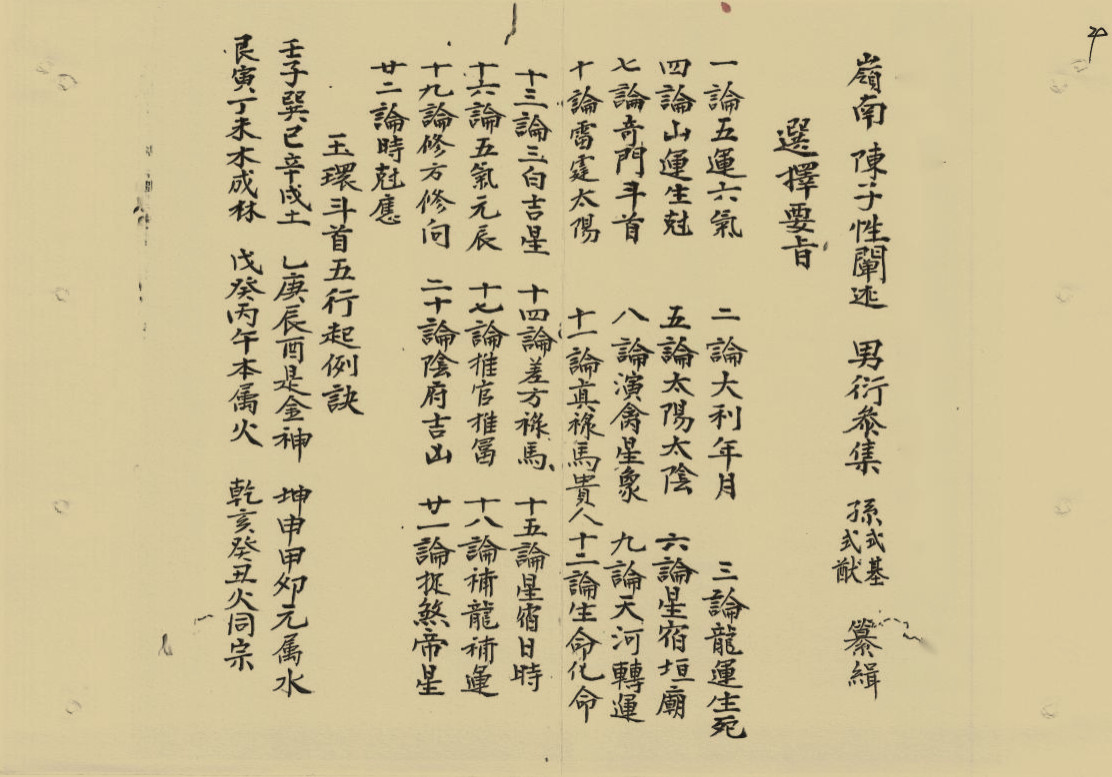 嶺南 陳子性闡述 男衍參集 孫式基式猷 纂緝
選擇要旨
一論五運六氣 二論大利年月 三論龍運生死
四論山運生尅 五論太陽太陰 六論星宿垣廟
七論奇門斗首 八論演禽星象 九論天河轉運
十論雷霆太陽 十一論真祿馬貴人 十二論生命化命
十三論三白吉星 十四論差方祿馬 十五論星宿日時
十六論五氣元辰 十七論推官推畐 十八論補龍補運
十九論修方修向 二十論陰府吉山 廿一論捉煞帝星
廿二論時尅應
玉環斗首五行起例訣
壬子巽巳辛戌土 乙庚辰酉是金神 坤申甲卯元属水
艮寅丁未木成林 戊癸丙午本属火 乾亥癸丑火同宗